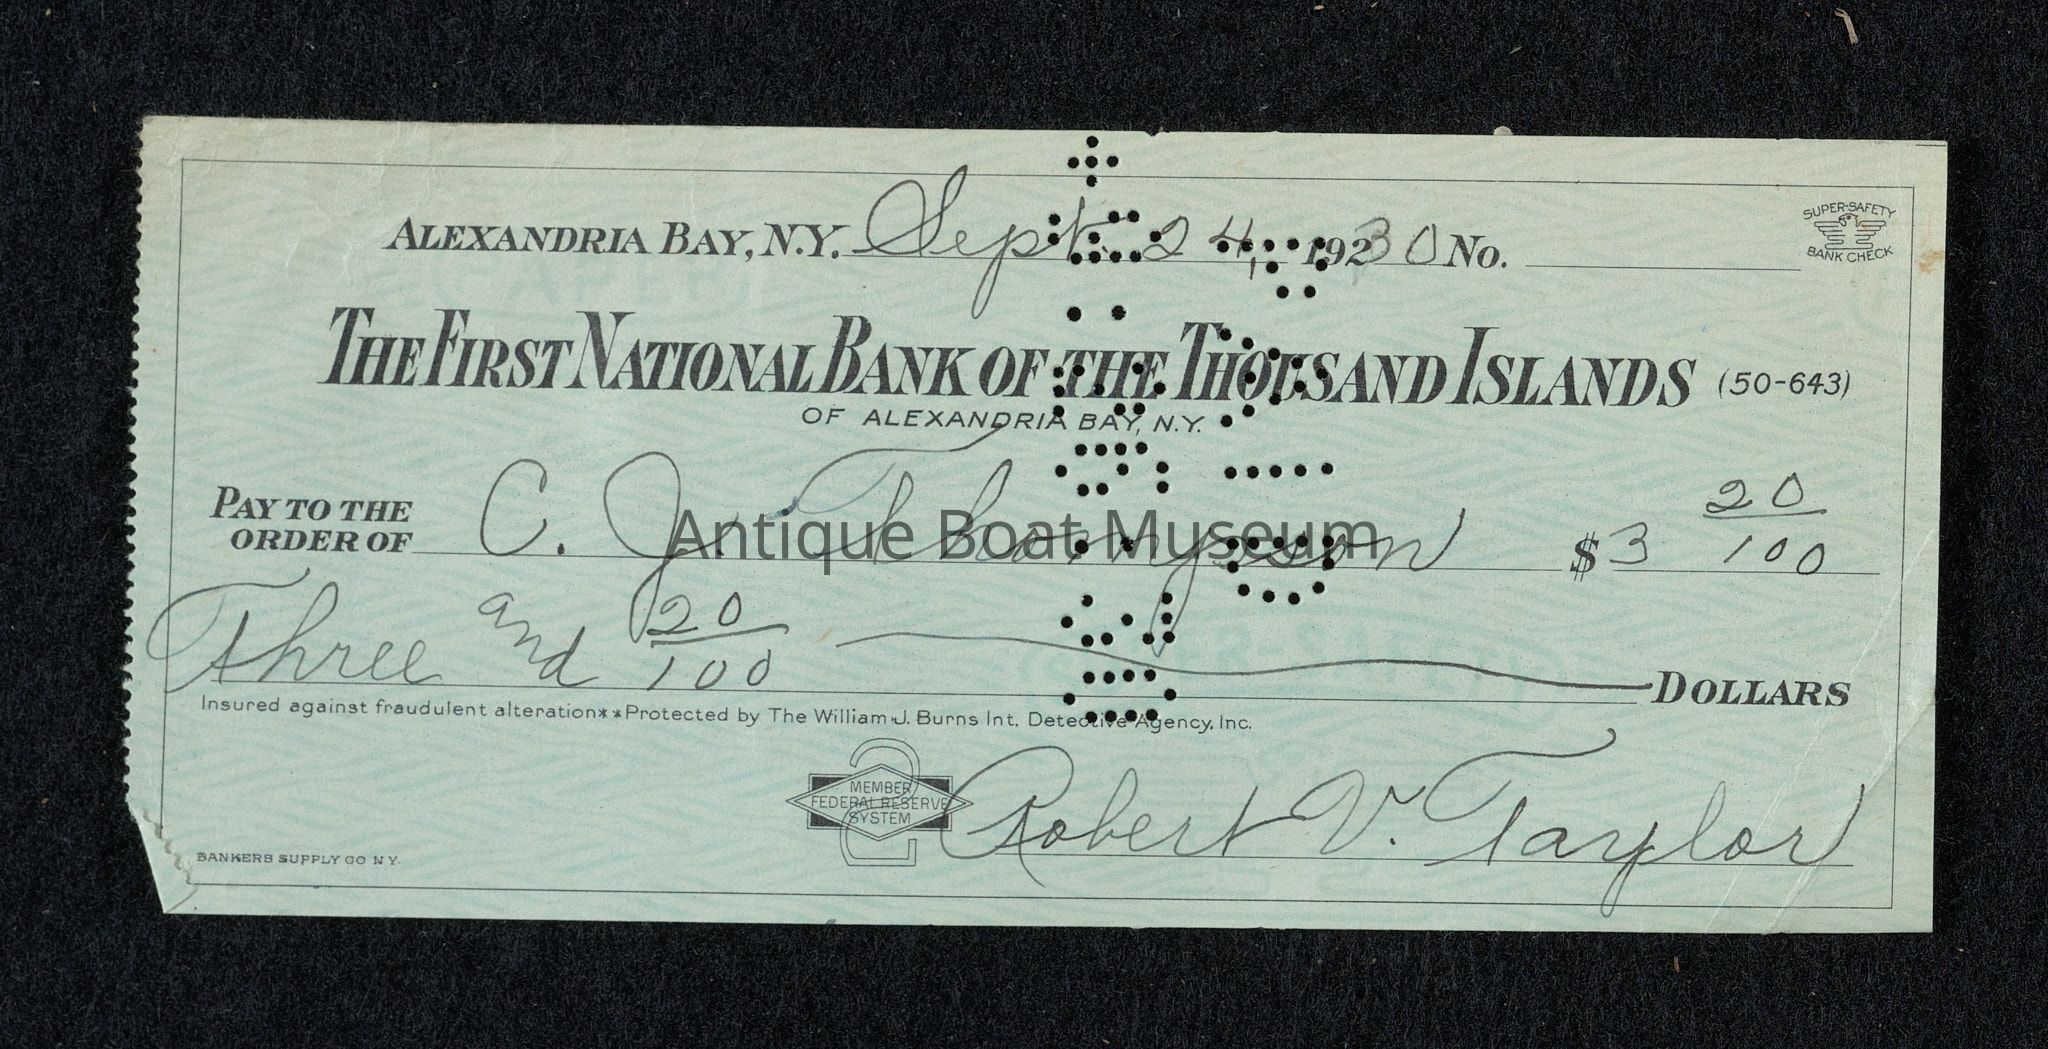 SUPER-SAFETY
BANK CHECK
ALEXANDRIA BAY, N.Y. Sept. 24, 1930 No.
THE FIRST NATIONAL BANK OF THE THOUSAND ISLANDS (50-643)
OF ALEXANDRIA BAY, N.Y.
PAY TO THE
ORDER OF C. J. Thompson $3 20/100
Antique Boat Museum
Three and 20/100 DOLLARS
Insured against fraudulent alteration**Protected by The William J. Burns Int. Detective Agency, Inc.
MEMBER
FEDERAL RESERVE
SYSTEM
Robert V. Taylor
BANKERS SUPPLY CO N.Y.